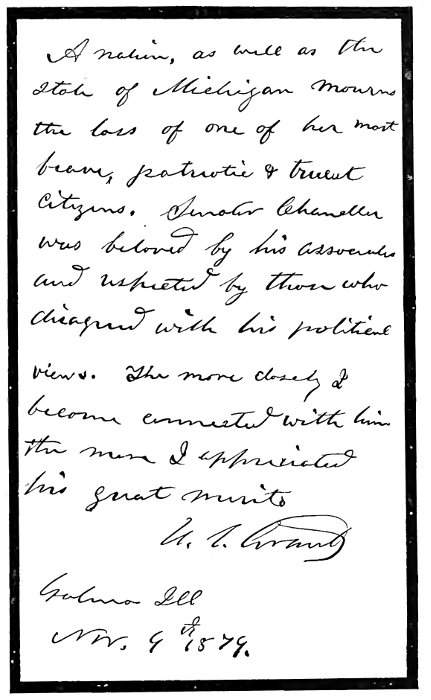 A nation, as well as the
state of Michigan mourns
the loss of one of her most
brave, patriotic & truest
citizens. Senator Chandler
was beloved by his associates
and respected by those who
disagreed with his political
views. The more closely I
became connected with him
the more I appreciated
his great merits
U. S. Grant
Galena Ill
Nov. 9th 1879.